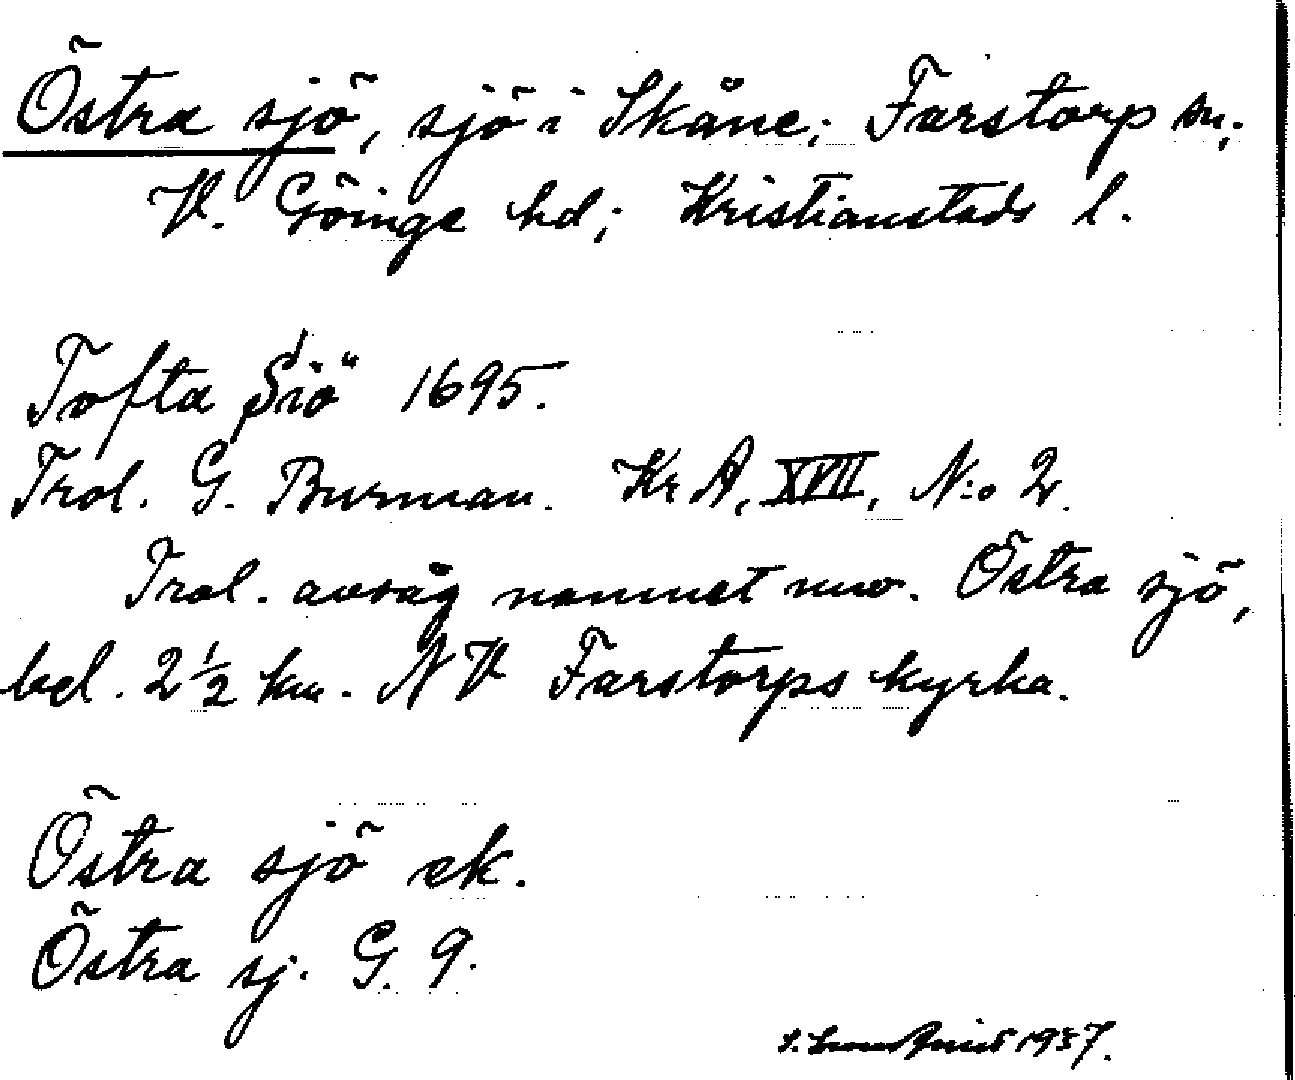 Östra sjö, sjö i Skåne; Farstorp sn;
V. Göinge hd; Kristianstads l.
Tofta Siö 1695.
Trol. G. Burman. Kr A, XVII, N:o 2.
Trol. avsåg namnet nuv. Östra sjö,
bel. 2 1/2 km. NV Farstorps kyrka.
Östra sjö ek.
Östra sj. G. 9.
1937.